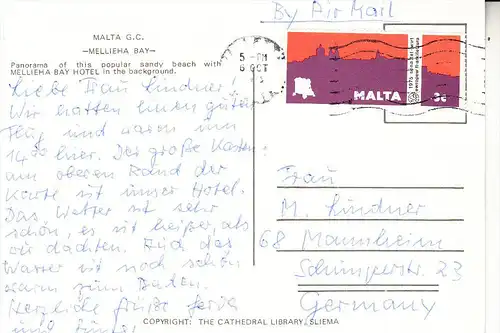 MALTA G.C.
—MELLIEHA BAY—
Panorama of this popular sandy beach with
MELLIEHA BAY HOTEL in the background.
By Air Mail
5-PM
8 OCT
MALTA
3c
1975
Liebe Frau Lindner!
Wir hatten einen guten
Flug und waren um
14°° hier. Der große Kasten
am oberen Rand der
Karte ist unser Hotel.
Das Wetter ist sehr
schön, es ist heißer, als
wir dachten. Auch das
Wasser ist noch schön
warm zum Baden.
Herzliche Grüße
und
Frau
M. Lindner
68 Mannheim
Schimperstr. 23
Germany
COPYRIGHT: THE CATHEDRAL LIBRARY, SLIEMA